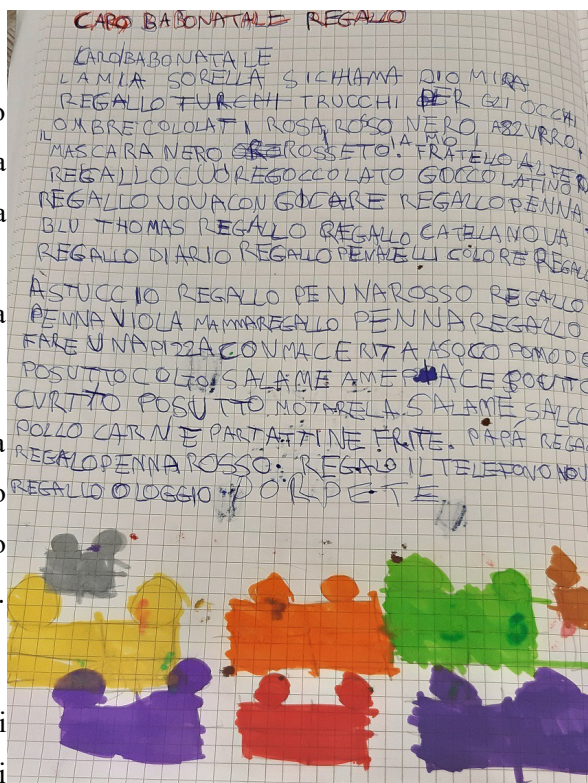 CARO BABONATALE REGALLO
CARO BABONATALE
LAMIA SORELLA SICHIAMA DIOMIRA
REGALLO TURCHI TRUCCHI PER GLI OCCHI
OMBREICOLOLATI ROSA, ROSSO NERO, ASZURRO.
IL MASCARA NERO ROSSETO. IA MIO FRATELO ALFE
REGALLO CUOREGOCCOLATO GOCCOLATINO
REGALLO VOVACON GOCARE REGALLO PENNA
BLU THOMAS REGALLO REGALLO CATELANOVA
REGALLO DIARIO REGALLO PENALELLI COLORE REGAL
ASTUCCIO REGALLO PENNAROSSO REGALLO
PENNA VIOLA MAMMAREGALLO PENNA REGALLO
FARE UNAPIZZA CONMACERITA ASOCO POMODE
POSUTTO COLTO, SALAME AME PIACE
CURTTO POSUTTO. MOTARELA. SALAME, SALLC
POLLO CARNE PARTATTINE FRITE. PAPÁ REGA
REGALOPENNA ROSSO. REGALO IL TELEFONO NOV
REGALLO OLOGGIO PORPETE